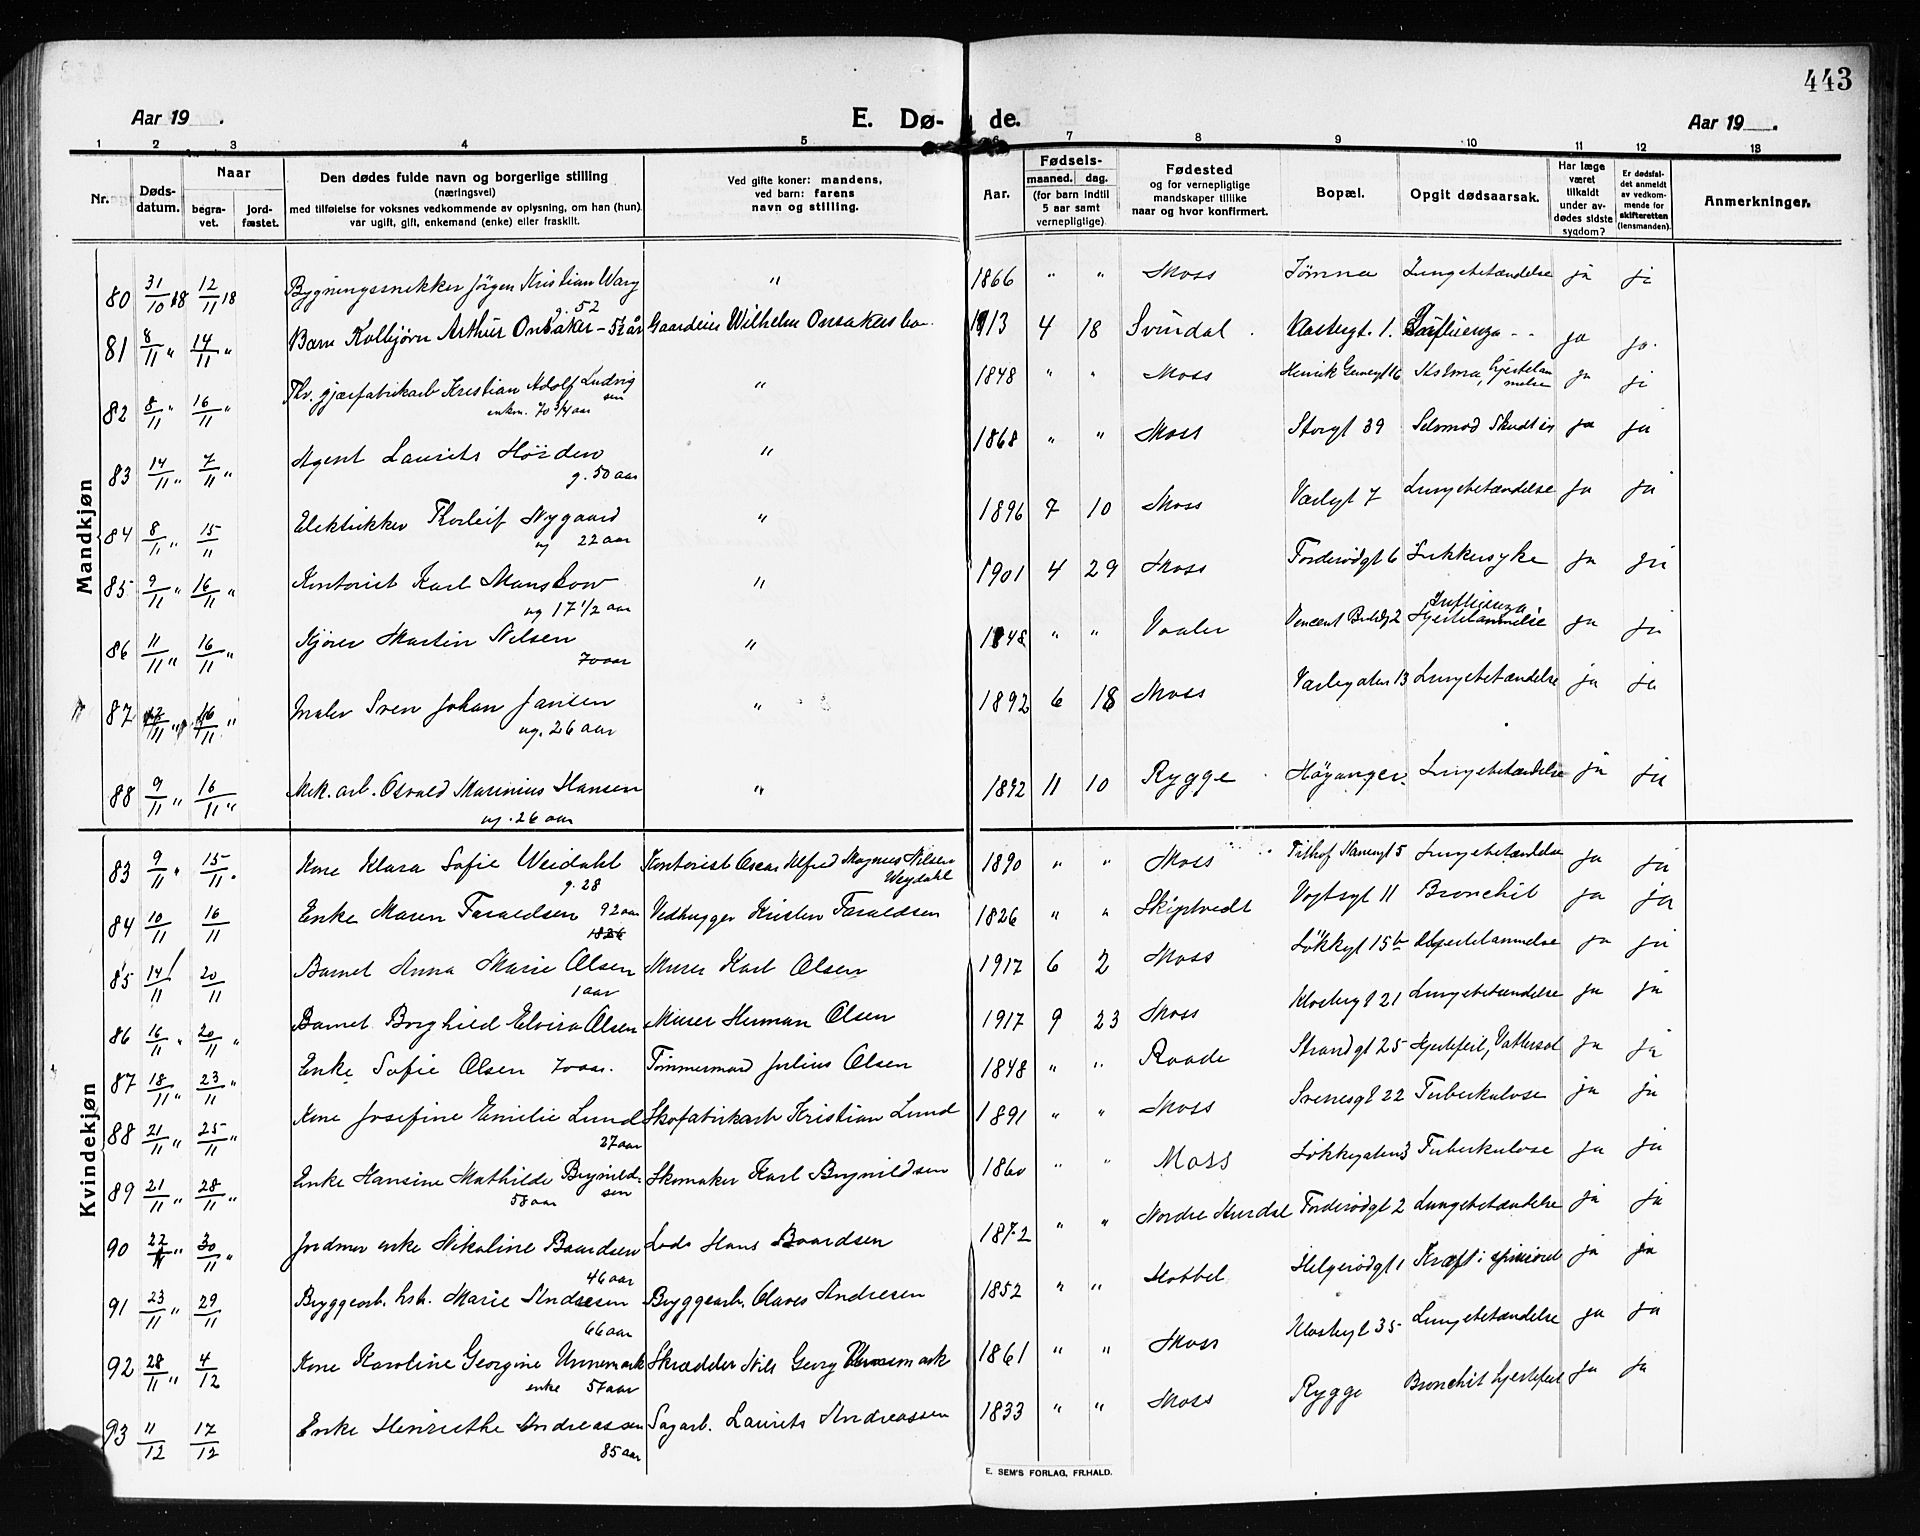 443
Aar 19 . E. Dø- de. Aar 19 .
1 2 3 4 5 6 7 8 9 10 11 12 13
Nr. Døds-datum. Naar begra-vet. jord-fæstet. Den dødes fulde navn og borgerlige stilling (næringsvei) med tilføielse for voksnes vedkommende av oplysning, om han (hun) var ugift, gift, enkemand (enke) eller fraskilt. Ved gifte koner: mandens, ved barn: farens navn og stilling. Aar. Fødsels- maaned. dag. (for barn indtil 5 aar samt vernepligtige) Fødested og for vernepligtige mandskaper tillike naar og hvor konfirmert. Bopæl. Opgit dødsaarsak. Har læge været tilkaldt under av-dødes sidste sygdom? Er dødsfal-det anmeldt av vedkom-mende for skifteretten (lensmanden). Anmerkninger.
Mandkjøn
80 31/10 18 12/11 18 Bygningssnekker Jörgen Kristian Warg " 1866 " " Moss Lungebetændelse ja ja
52
81 8/11 " 14/11 " Barn Kolbjörn Arthur Onsaker - 5½ år Gaardeier Wilhelm 1913 4 18 Svindal . Klostergt. 1. Influenza - - ja ja.
82 8/11 " 16/11 " Fhv. gjærfabrikarb Kristian Adolf Ludvigsen " 1848 " " Moss Henrik Gernergt 16 Astma, hjertelammelse ja ja
enkm. 70 3/4 aar
83 14/11 " 7/11 " Agent Laurits " 1868 " " Moss Storgt 39 Selvmod Skudt in ja ja
g. 50 aar
84 8/11 " 15/11 Elektrikker Thorleif Nygaard " 1896 7 10 Moss Varlegt 7 Lungebetændelse ja ja
ug 22 aar
85 9/11 " 16/11 " Kontorist Karl " 1901 4 29 Moss 6 Sukkersyke ja ja
ug 17 1/2 aar
86 11/11 " 16/11 " Kjører Martin Nilsen " 1848 " " Vaaler 2 Influenza, Hjertelammelse ja ja
70 aar
87 12/11 " 16/11 " Maler Sven Johan Jansen " 1892 6 18 Moss Varlegaten 13 Lungebetændelse ja ja
ug. 26 aar
88 9/11 " 16/11 " Mek. arb. Osvald Marinius Hansen " 1892 11 10 Rygge Höyanger. Lungebetændelse ja ja
ug. 26 aar
Kvindekjøn
83 9/11 " 15/11 . Kone Klara Sofie Weidahl Kontorist Oscar Alfred Magnus Nilsen Weydahl 1890 " " Moss 5 Lungebetændelse ja ja
g. 28
84 10/11 16/11 Enke Maren Faraldsen 92 aar Vedhugger Kristen Faraldsen 1826 " " Skiptvedt Vogtsgt 11 Bronchit ja ja
1826
85 14/11 20/11 Barnet Anna Marie Olsen Murer Karl Olsen 1917 6 2 Moss Løkkegt 15b Hjertelammelse ja ja
1 aar
86 16/11 " 20/11 " Barnet Borghild Elvira Olsen Murer Herman Olsen 1917 9 23 Moss Klostergt 21 Lungebetændelse ja ja
87 18/11 " 23/11 " Enke Sofie Olsen 70 aar. Tömmermand Julius Olsen 1848 " " Raade Strandgt 25 Hjertefeil, Vattersot ja ja
88 21/11 " 25/11 " Kone Josefine Emilie Lund Skofabrikarb Kristian Lund 1891 " " Moss Svenesgt 22 Tuberkulose ja ja
27 aar
89 21/11 " 28/11 " Enke Hansine Mathilde Brynildsen Skomaker Karl Brynildsen 1860 " " Moss Løkkegaten 3 Tuberkulose ja ja
58 aar
90 22/11 " 30/11 " Jordmor enke Nikoline Baardsen Lods Hans Baardsen 1872 " " Nordre Hurdal 2 Lungebetændelse ja ja
46 aar
91 23/11 " 29/11 Bryggearb. hstr. Marie Andresen Bryggearb. Olaves Andresen 1852 " " Hobbel Helgerødgt 1 Kræft i spiserør ja ja
66 aar
92 28/11 " 4/12 Kone Karoline Georgine Unnemark Skrædder Nils Georg Unnemark 1861 " " Moss Klostergt 35 Lungebetændelse ja ja
enke 57 aar
93 11/12 17/12 Enke Henriethe Andreassen Sagarb. Laurits Andreassen 1833 " " Moss Rygge Bronchit hjertefeil ja ja
85 aar
E. SEM'S FORLAG, FR.HALD.